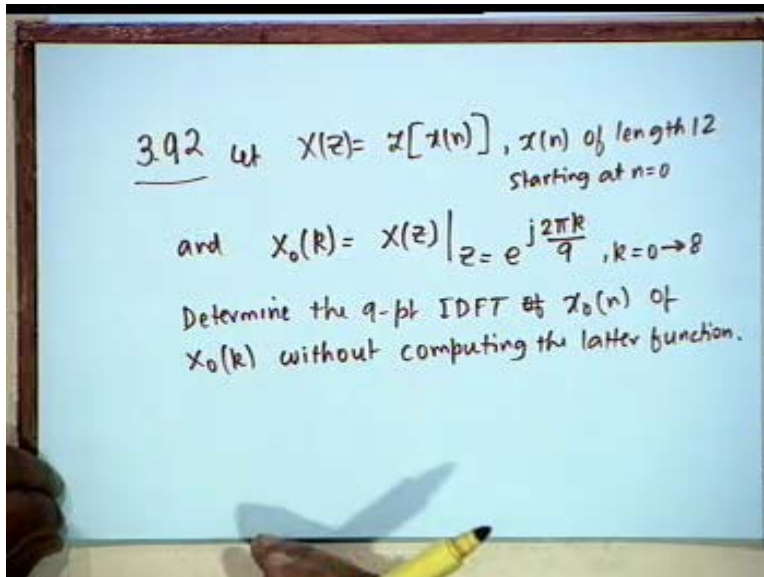 3.92 Let X(z) = Z[x(n)], x(n) of length 12
starting at n=0
and X₀(k) = X(z)|_{z = e^{j 2πk/9}}, k=0→8
Determine the 9-pt IDFT x₀(n) of
X₀(k) without computing the latter function.